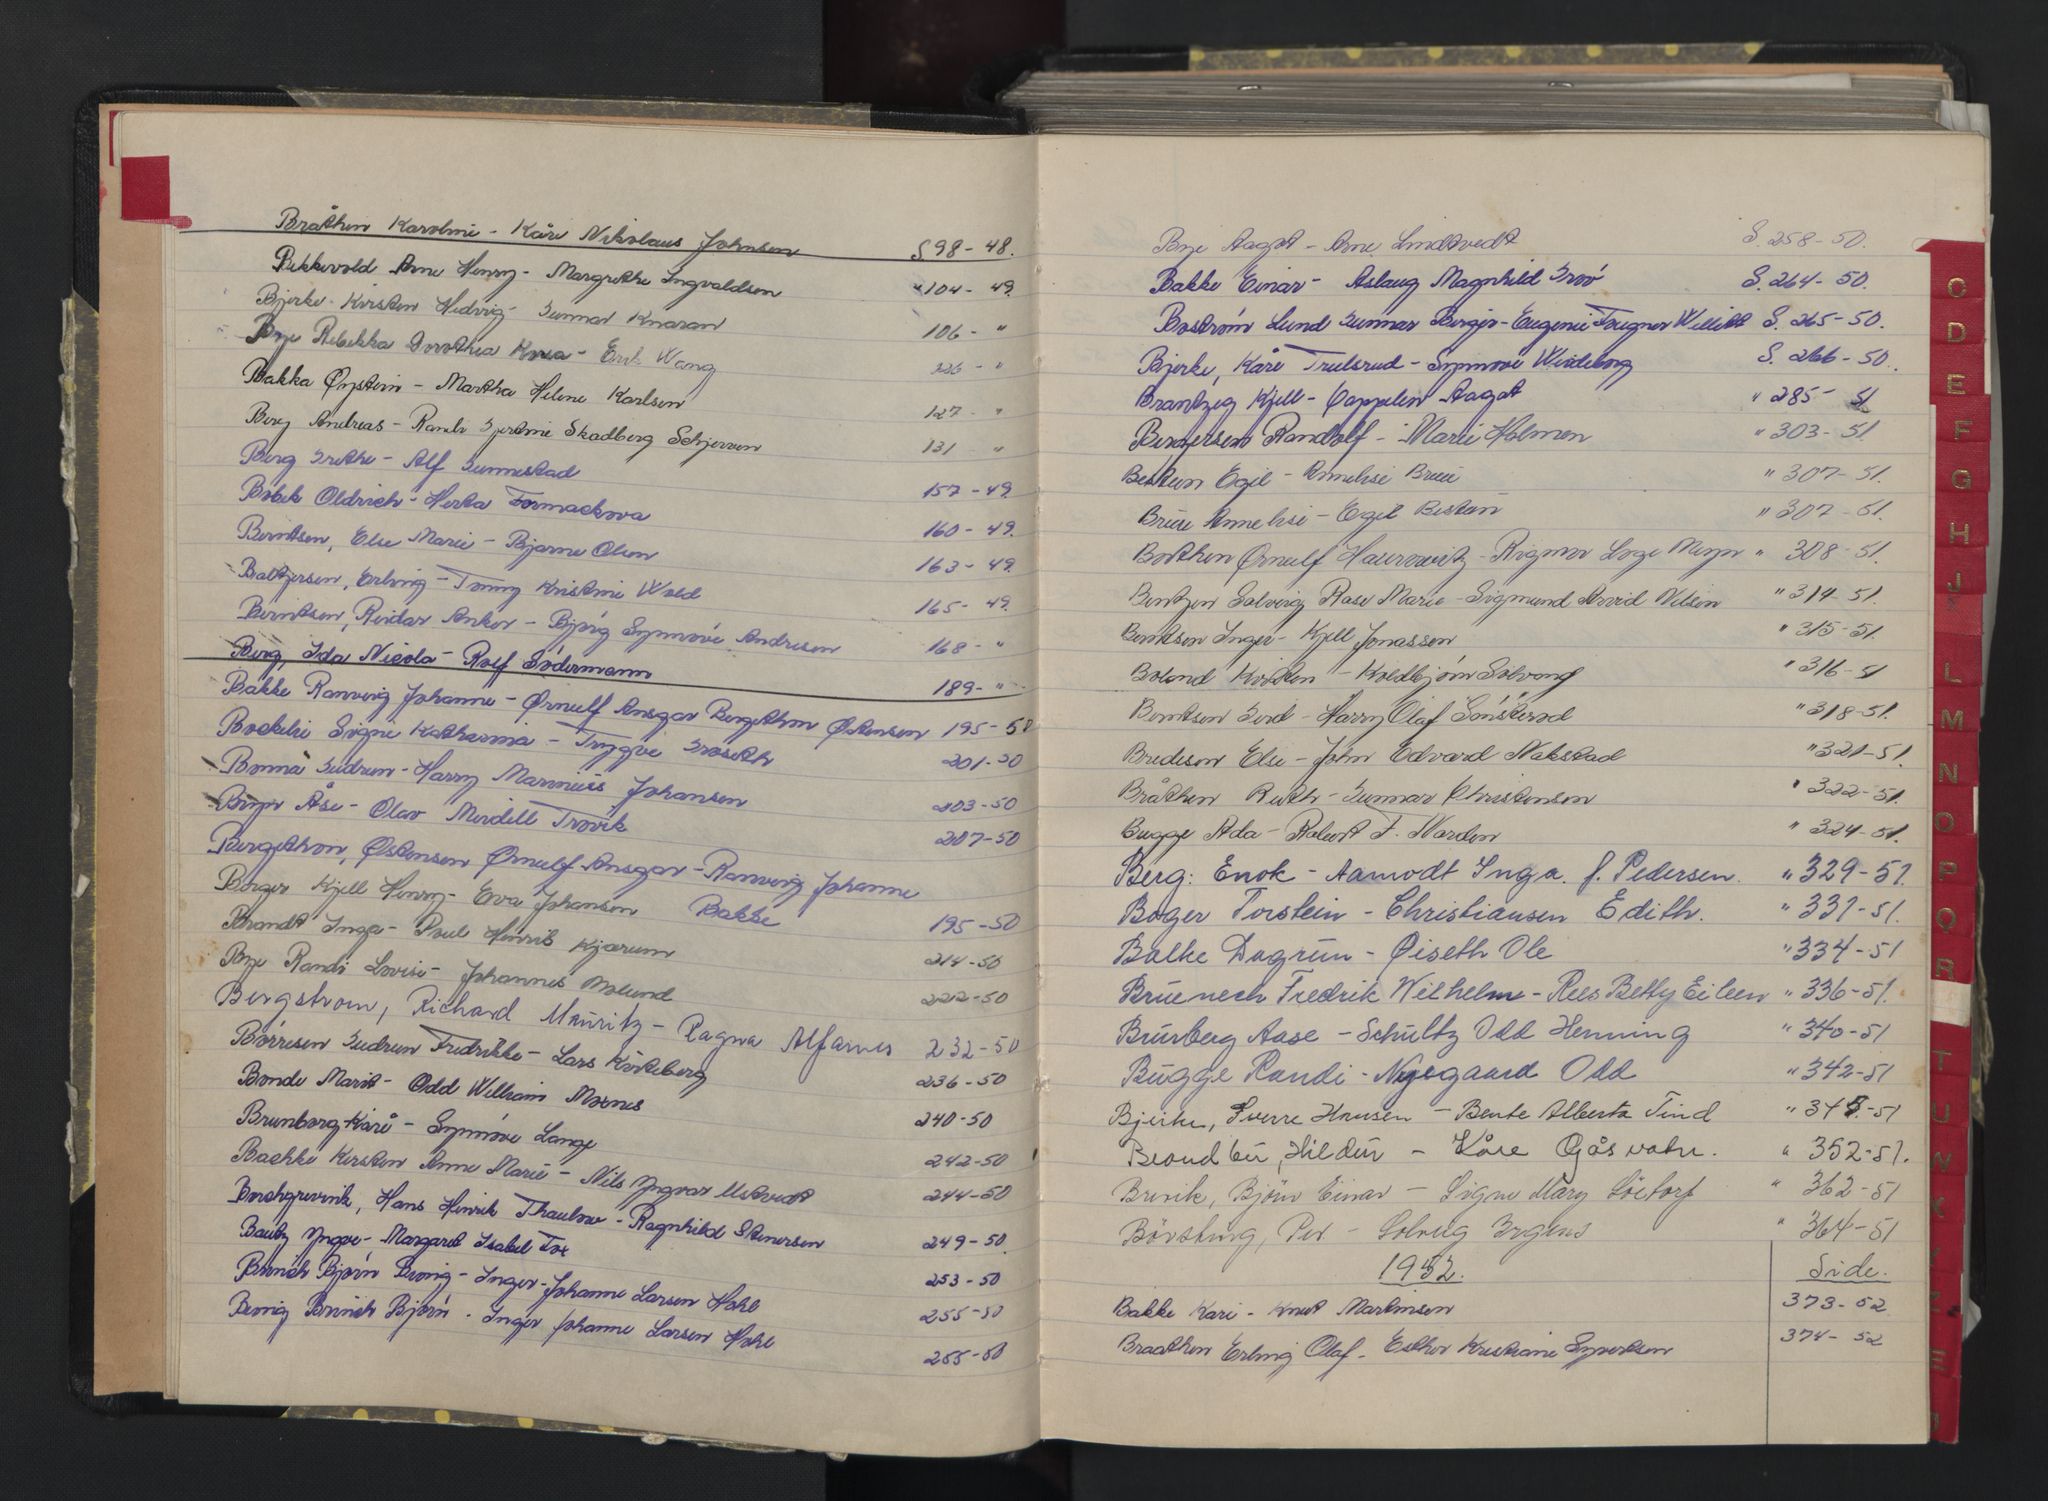 Bråthen Karoline - Kåre Nikolaus Johnsen S 98 - 48.
Bekkevold Arne Henry - Margrethe Ingvaldsen " 104 - 49.
Bjerke - Kirsten Hedvig - Gunnar Knaran 106 - "
Bye Rebekka Dorothea - Erik Wang 226 - "
Bakka Øystein - Martha Helene Karlsen 127 - "
Berg Andreas - Randi Gjertine Skadberg Schjerven 131 "
Berg Grethe - Alf Gunnestad 157 - 49.
Bobek Oldrich - Herta Formackova 160 - 49.
Berntsen, Else Marie - Bjarne Olsen 163 - 49.
Baltzersen, Erling - Tonny Kristine Wold 165 - 49.
Berntsen, Reidar Anker - Bjørg Synnøve Andresen 168 - "
Berg, Ida Nicola - Rolf Södermann 189 - "
Bakke Ranveig Johanne - Ørnulf Ansgar Bergethon Østensen 195 - 50
Bockelie Signe Katharina - Trygve Groseth 201 - 50
Bonna Gudrun - Harry Marinius Johansen 203 - 50
Bryn Åse - Olav Meidell Trovik 207 - 50
Bergethon, Østensen Ørnulf Ansgar - Ranveig Johanne
Bakke 195 - 50
Berger Kjell Henry - Eva Johansen 214 - 50
Brandt Inga - Poul Henrik Kjærum 222 - 50
Bye Randi Lovise - Johannes Moland
Bergstrom, Richard Mauritz - Ragna Alfarnes 232 - 50
Börresen Gudrun Fredrikke - Lars Kirkeberg 236 - 50
Bonde Marit - Odd William Moxnes 240 - 50
Brunborg Kåre - Synnöve Lange 242 - 50
Bachke Kirsten Anne Marie - Nils Yngvar Ustvedt 244 - 50
Borchgrevink, Hans Henrik Thaulow - Ragnhild Stenersen 249 - 50.
Bautz Yngve - Margaret Isabel Fox 253 - 50
Brinch Bjørn Benig - Inger-Johanne Larsen Hohl 255 - 50
Benig Brinch Bjørn - Inger Johanne Larsen Hohl 255 - 50
Bye Aagot - Arne Lindtvedt S. 258 - 50.
Bakke Einar - Aslaug Magnhild Groö S. 264 - 50.
Boström Lund Gunnar Birger - Eugenie Fougner Willett S. 265 - 50.
Bjerke, Kåre Trulsrud - Synnøve Windeborg S. 266 - 50.
Brantzeg Kjell - Cappelen Aagot " 285 - 51
Bergersen Randolf - Marie Holmen " 303 - 51.
Bestun Egil - Annelise Brue " 307 - 51.
Brue Annelise - Egil Bestun " 307 - 51.
Borthen Ørnulf Haurowitz - Rigmor Loge Meyer " 308 - 51.
Bentzen Solveig Rase Marie - Sigmund Arvid Nilsen " 314 - 51.
Berntsen Inger - Kjell Jonassen " 315 - 51.
Boland Kirsten - Koldbjörn Solvang " 316 - 51
Berntsen Gerd - Harry Olaf Sönsteröd " 318 - 51.
Bredesen Else - John Edvard Nakstad " 321 - 51.
Bråthen Ruth - Gunnar Christensen " 322 - 51.
Bugge Ada - Robert F. Norden " 324 - 51.
Berg: Enok - Aamodt Inga. f. Pedersen. " 329 - 51.
Boger Torstein - Christiansen Edith. " 331 - 51.
Balke Dagrun - Øiseth Ole " 334 - 51
Bruenech Fredrik Wilhelm - Rees Betty Eileen " 336 - 51.
Burberg Aase - Schultz Odd Henning " 340 - 51
Bugge Randi - Nysgaard Odd " 342 - 51
Bjerke, Sverre Hansen - Bente Alberta Tind " 345 - 51
Brandbu, Hildur - Kåre Gåsvatn. " 352 - 51.
Brevik, Björn Einar - Signe Mary Löctorf " 362 - 51
Börsting, Per - Solveig Grgens " 364 - 51
1952. Side.
Bakke Kari - Knut Martinsen 373 - 52
Braathen Erling Olaf - Esther Kristiane Syvertsen 374 - 52
C
D
E
F
G
H
J
L
M
N
O
P
Q
R
T
U